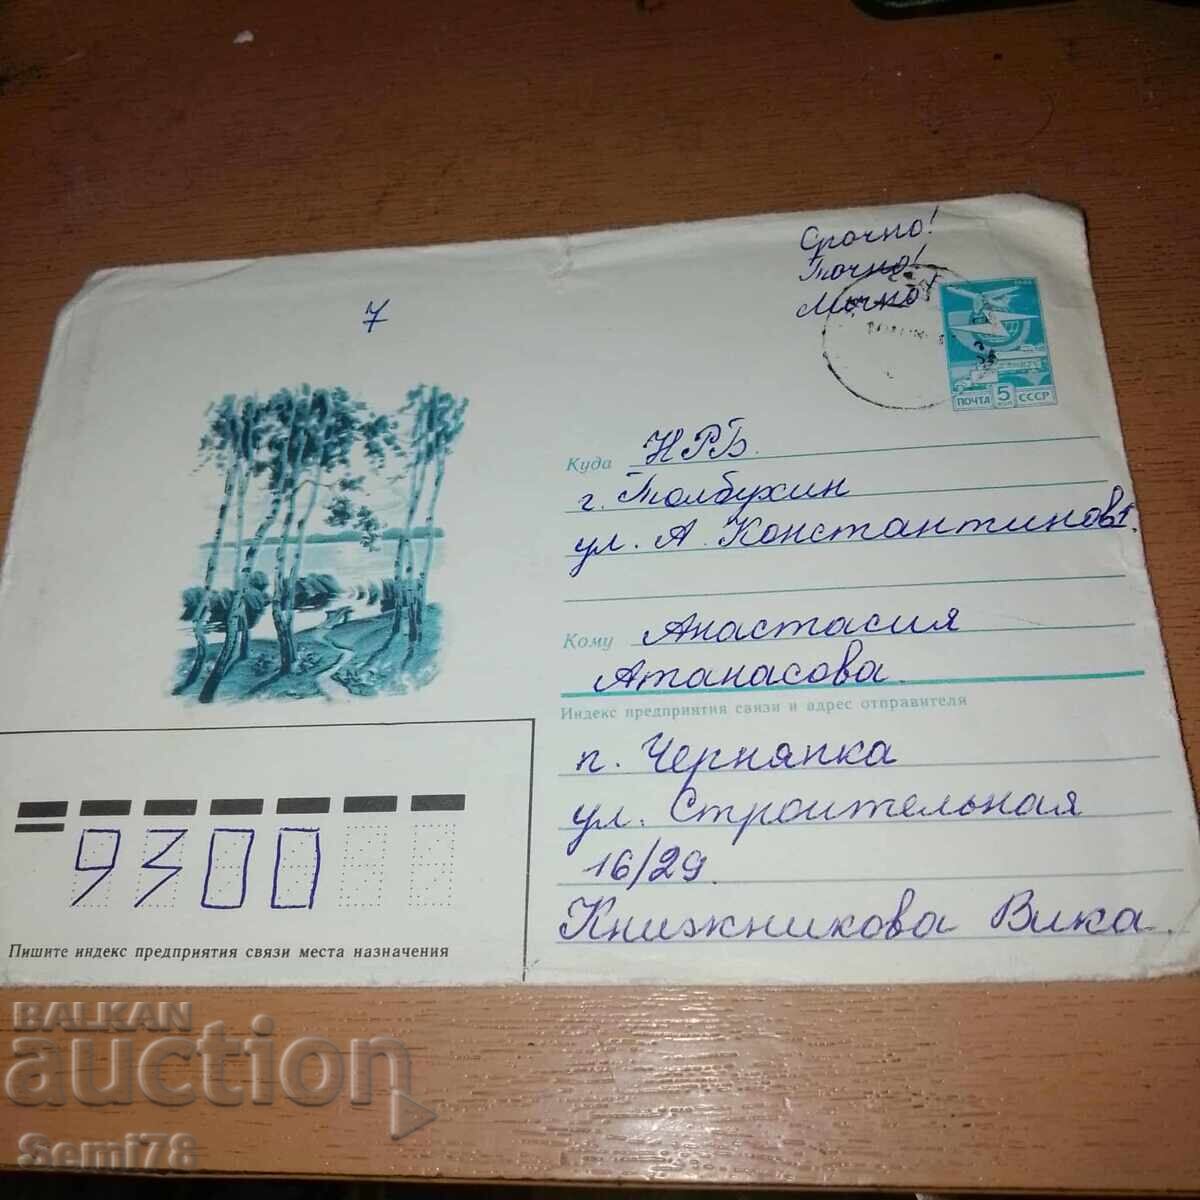 Срочно!
Точно!
Мочно!
7
ПОЧТА 5 КОП СССР
Куда НРБ.
г. Толбухин
ул. А. Константинов 1.
Кому Анастасия
Атанасова.
Индекс предприятия связи и адрес отправителя
п. Чернянка
ул. Строительная
16/29.
Книжникова Вика.
9300
Пишите индекс предприятия связи места назначения
BALKAN
auction
Semi78